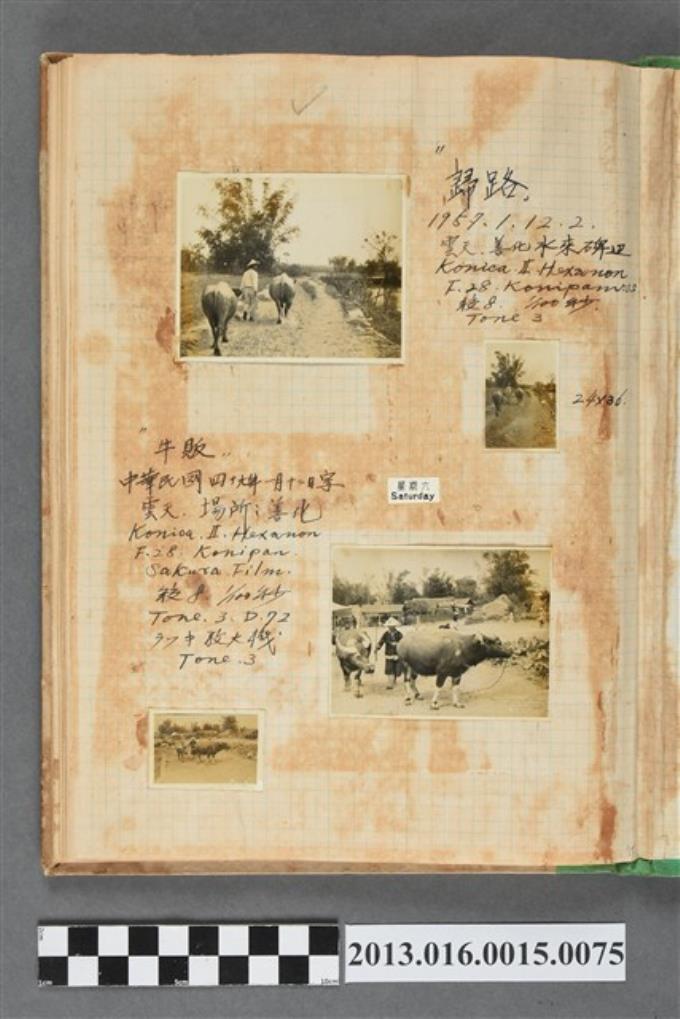 "歸路,
1959.1.12.2.
雲天. 善化
Konica II. Hexanon
F.28. Konipan.
絞8. 1/100秒.
Tone 3
24x36.
"牛販"
中華民國四十八年一月十二日
雲天. 場所: 善化
Konica II. Hexanon
F.28. Konipan.
Sakura Film.
絞8. 1/100秒
Tone. 3. D.72
放大機
Tone. 3
星期六
Saturday
1cm
5cm
10cm
2013.016.0015.0075